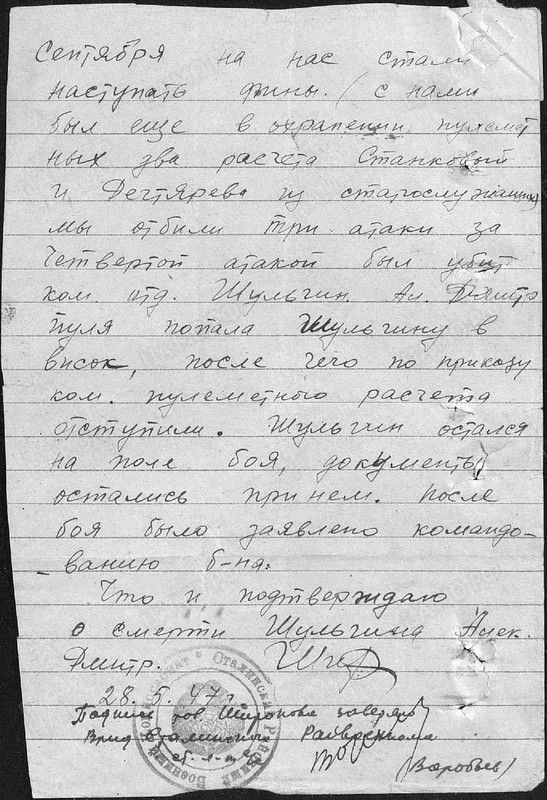 Сентября на нас стали
наступать фины. (с нами
был еще в охранении пулемет
ных два расчета Станковый
и Дегтярева из старослужащих)
мы отбили три атаки за
четвертой атакой был убит
ком. отд. Шульгин Ал. Дмитр
пуля попала Шульгину в
висок, после чего по приказу
ком. пулеметного расчета
отступили. Шульгин остался
на поле боя, документы
остались при нем. После
боя было заявлено командо-
ванию б-на.
Что и подтверждаю
о смерти Шульгина Алек.
Дмитр.
28.5.47г
Подпись тов Широкова заверяю
Врид Сталинского Райвоенкома
(Воробьев)